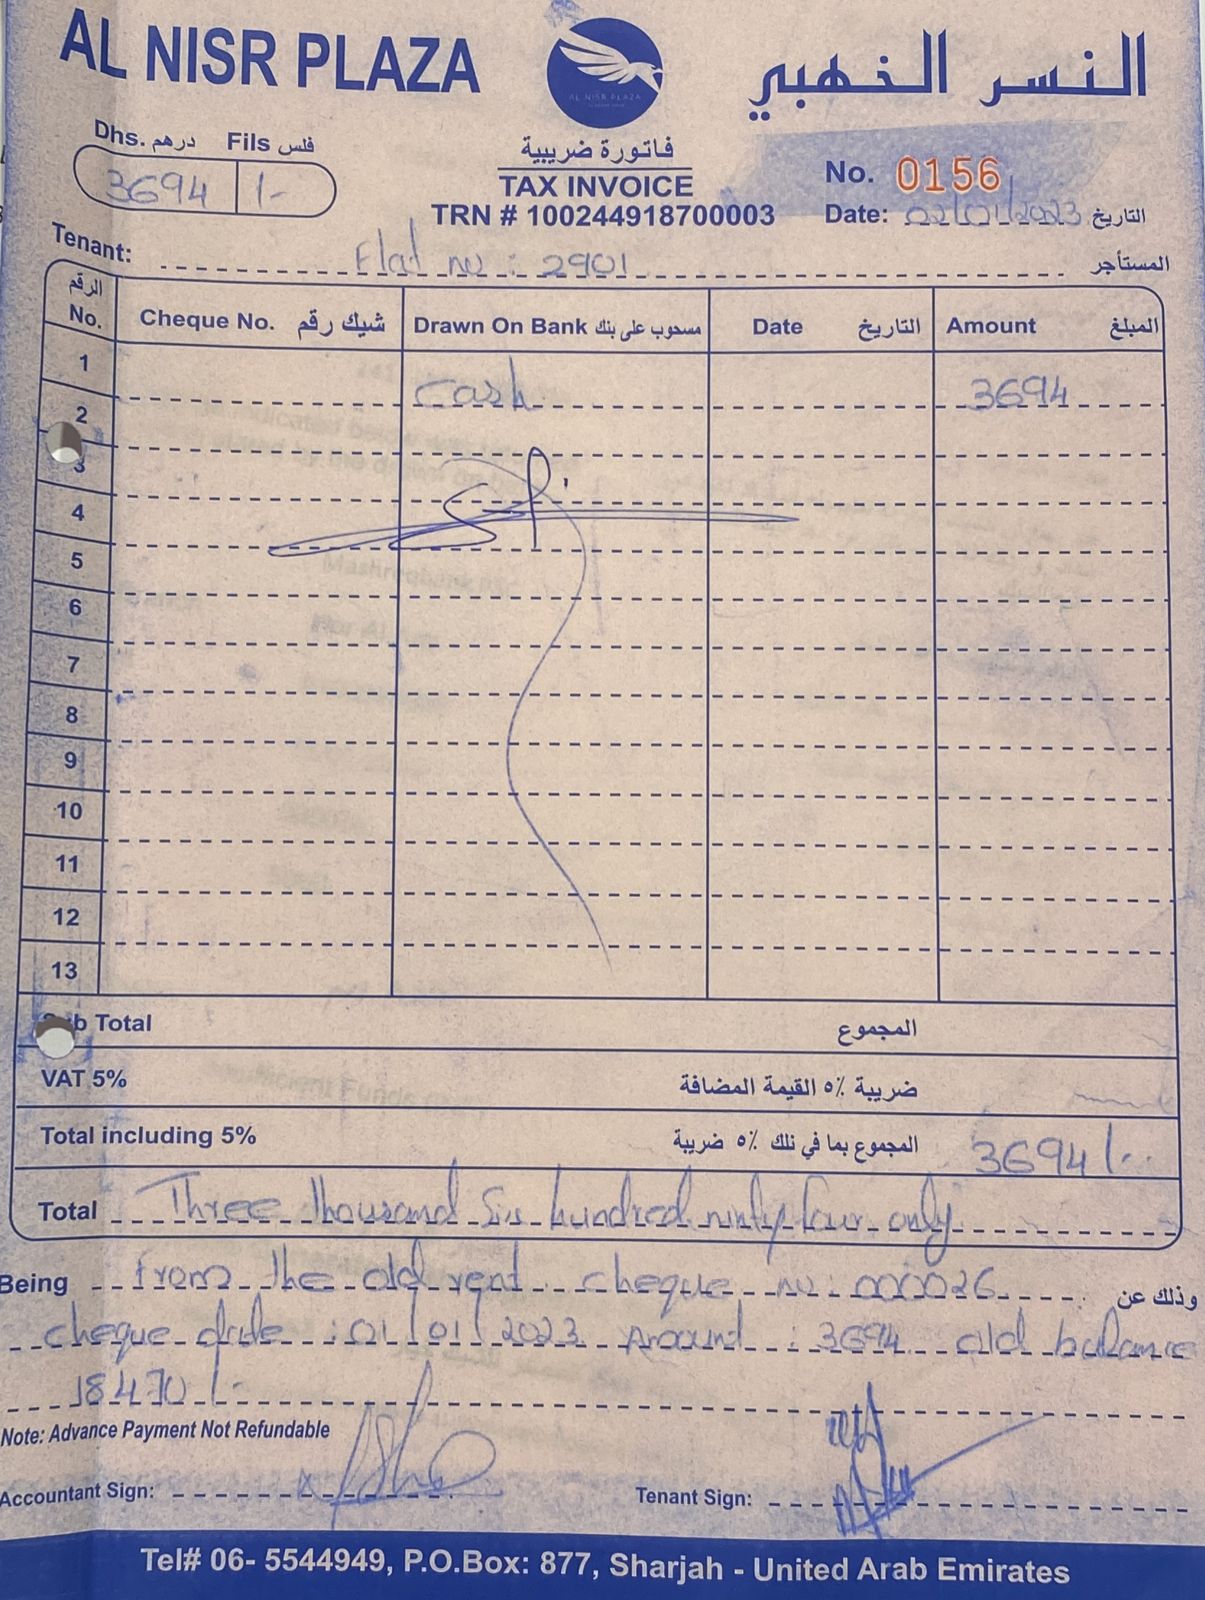 AL NISR PLAZA
النسر الخهبي
AL NISR PLAZA
Dhs. درهم Fils فلس
3694 /-
فاتورة ضريبية
TAX INVOICE
TRN # 100244918700003
No. 0156
Date: 02/01/2023 التاريخ
Tenant: Flat no : 2901 المستأجر
الرقم No. Cheque No. شيك رقم Drawn On Bank مسحوب على بنك Date التاريخ Amount المبلغ
1 Cash 3694
2
3
4
5
6
7
8
9
10
11
12
13
Sub Total المجموع
VAT 5% ضريبة ٥٪ القيمة المضافة
Total including 5% المجموع بما في تلك ٥٪ ضريبة 3694/..
Total Three thousand Six hundred ninty four only
Being From the old rent cheque no: 000026 وذلك عن
cheque date : 01/01/2023 Amount : 3694 old balance
18470/-
Note: Advance Payment Not Refundable
Accountant Sign: Tenant Sign:
Tel# 06- 5544949, P.O.Box: 877, Sharjah - United Arab Emirates